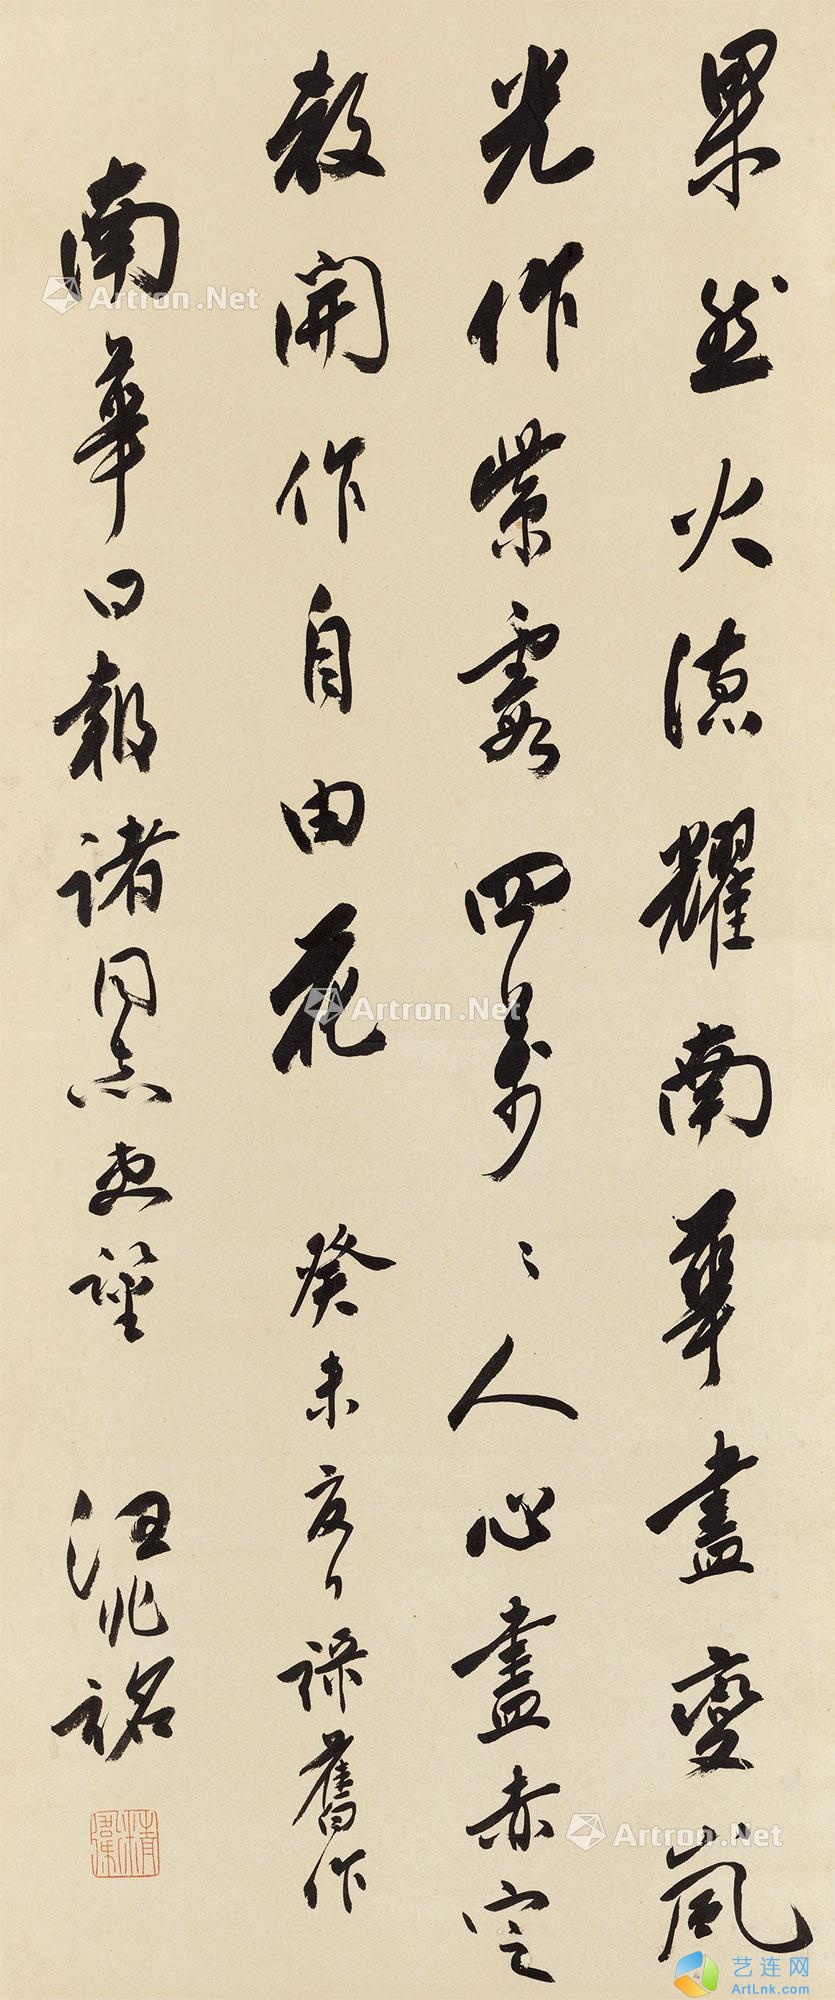 果然火德耀南華盡變嵐
光作紫霞四萬〻人心盡赤定
教開作自由花 癸未夏日録舊作
南華日報諸同志 汪兆銘
精衛
Artron.Net
Artron.Net
Artron.Net
Artron.Net
Artron.Net
艺连网
ArtLnk.com